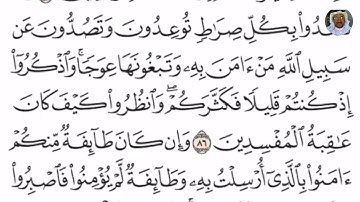 تَقۡعُدُواْ بِكُلِّ صِرَٰطٖ تُوعِدُونَ وَتَصُدُّونَ عَن
سَبِيلِ ٱللَّهِ مَنۡ ءَامَنَ بِهِۦ وَتَبۡغُونَهَا عِوَجٗاۚ وَٱذۡكُرُوٓاْ
إِذۡ كُنتُمۡ قَلِيلٗا فَكَثَّرَكُمۡۖ وَٱنظُرُواْ كَيۡفَ كَانَ
عَٰقِبَةُ ٱلۡمُفۡسِدِينَ ٨٦ وَإِن كَانَ طَآئِفَةٞ مِّنكُمۡ
ءَامَنُواْ بِٱلَّذِيٓ أُرۡسِلۡتُ بِهِۦ وَطَآئِفَةٞ لَّمۡ يُؤۡمِنُواْ فَٱصۡبِرُواْ